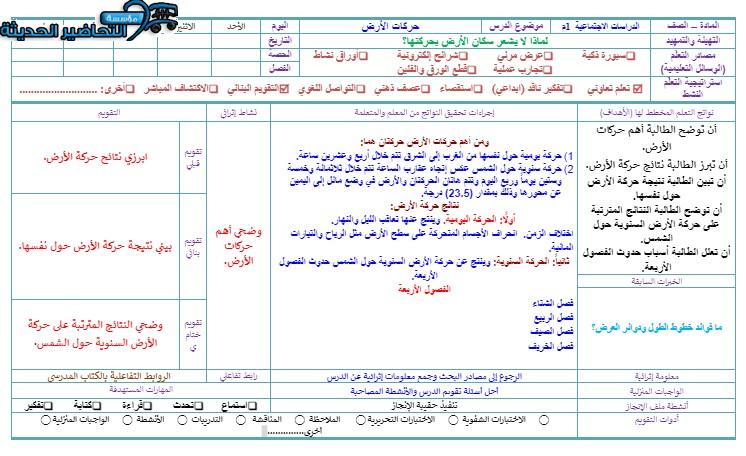 مؤسسة
التحاضير الحديثة
المادة – الصف
الدراسات الاجتماعية 1م
موضوع الدرس
حركات الأرض
اليوم
الأحد
الاثنين
التهيئة والتمهيد
لماذا لا يشعر سكان الأرض بحركتها؟
التاريخ
مصادر التعلم
(الوسائل التعليمية)
سبورة ذكية
عرض مرئي
شرائح إلكترونية
أوراق نشاط
الحصة
تجارب عملية
قطع الورق والفلين
الفصل
استراتيجية التعلم
النشط
تعلم تعاوني
تفكير ناقد (ابداعي)
استقصاء
عصف ذهني
التواصل اللغوي
التقويم البنائي
الاكتشاف المباشر
أخرى: ............................
نواتج التعلم المخطط لها (الأهداف)
إجراءات تحقيق النواتج من المعلم والمتعلمة
نشاط إثرائي
التقويم
أن توضح الطالبة أهم حركات
الأرض.
أن تبرز الطالبة نتائج حركة الأرض.
أن تبين الطالبة نتيجة حركة الأرض
حول نفسها.
أن توضح الطالبة النتائج المترتبة
على حركة الأرض السنوية حول
الشمس.
أن تعلل الطالبة أسباب حدوث الفصول
الأربعة.
الخبرات السابقة
ما فوائد خطوط الطول ودوائر العرض؟
ومن أهم حركات الأرض حركتان هما:
1) حركة يومية حول نفسها من الغرب إلى الشرق تتم خلال أربع وعشرين ساعة.
2) حركة سنوية حول الشمس عكس إتجاه عقارب الساعة تتم خلال ثلاثمائة وخمسة
وستين يوماً وربع اليوم وتتم هاتان الحركتان والأرض في وضع مائل إلى اليمين
عن محورها وذلك بمقدار (23.5) درجة.
نتائج حركة الأرض:
أولًا: الحركة اليومية. وينتج عنها تعاقب الليل والنهار.
اختلاف الزمن. انحراف الأجسام المتحركة على سطح الأرض مثل الرياح والتيارات
المائية.
ثانياً: الحركة السنوية: وينتج عن حركة الأرض السنوية حول الشمس حدوث الفصول
الأربعة.
الفصول الأربعة
فصل الشتاء
فصل الربيع
فصل الصيف
فصل الخريف
وضحي أهم
حركات
الأرض.
تقويم
قبلي
ابرزي نتائج حركة الأرض.
تقويم
بنائي
بيني نتيجة حركة الأرض حول نفسها.
تقويم
ختام
ي
وضحي النتائج المترتبة على حركة
الأرض السنوية حول الشمس.
معلومة إثرائية
الرجوع إلى مصادر البحث وجمع معلومات إثرائية عن الدرس
رابط تفاعلي
الروابط التفاعلية بالكتاب المدرسي
الواجبات المنزلية
أحل أسئلة تقويم الدرس والأنشطة المصاحبة
المهارات المستهدفة
أنشطة ملف الإنجاز
تنفيذ حقيبة الإنجاز
استماع
تحدث
قراءة
كتابة
تفكير
أدوات التقويم
الاختبارات الشفوية
الاختبارات التحريرية
الملاحظة
المناقشة
التدريبات
الأنشطة
الواجبات المنزلية
اخرى..............